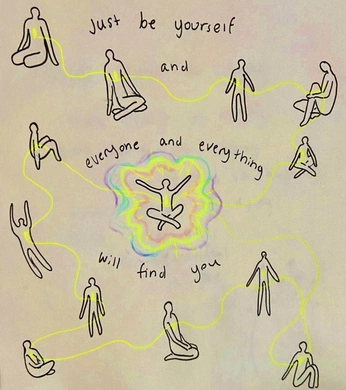 Just be yourself
and
everyone and everything
will find you